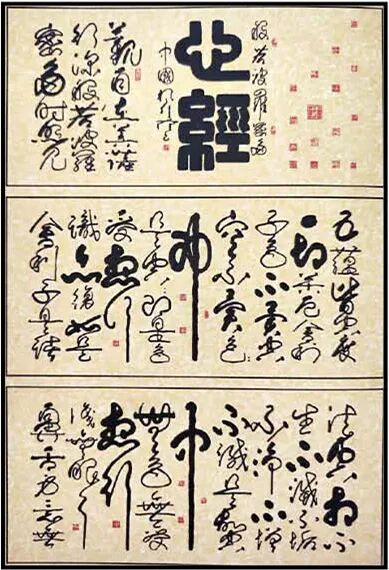 般若波羅蜜多
心經
觀自在菩薩
行深般若波羅
蜜多時照見
五蘊皆空度
一切苦厄舍利
子色不異空
空不異色色
即
是空空即是色
受想行
識亦復如是
舍利子是諸
法空相不
生不滅不垢
不淨不增
不減是故空
中
無色無受
想行
識無眼耳
鼻舌身意無